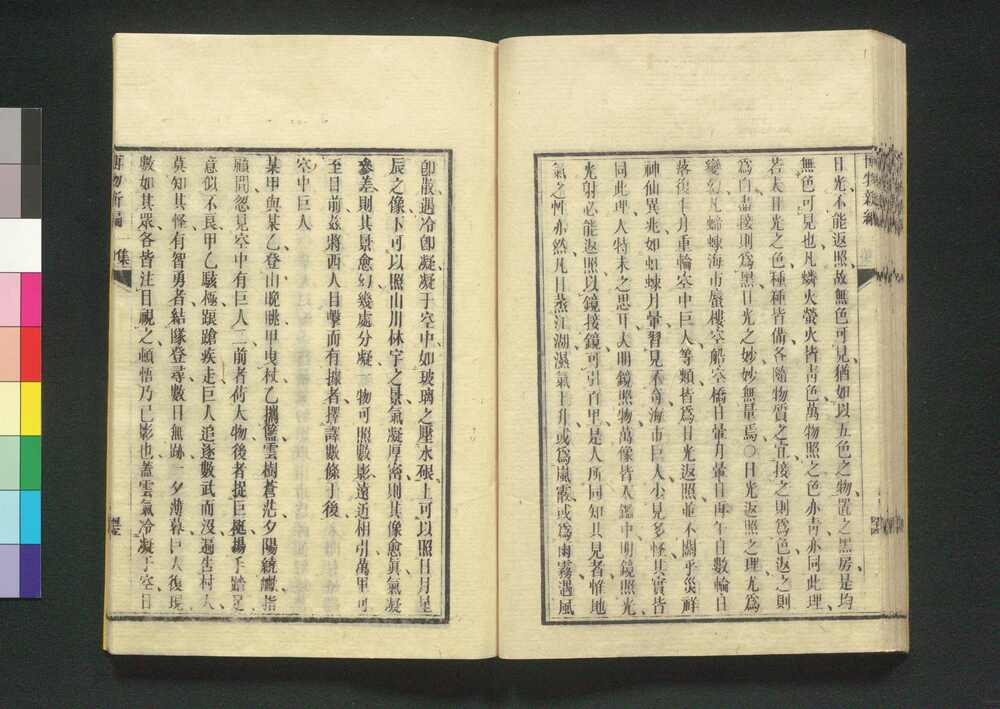 博物新編
日光不能返照故無色可見猶如以五色之物置之黑房是均
無色可見也凡燐火螢火皆青色萬物照之色亦青亦同此理
若夫日光之色種種皆備各隨物質之宜接之則爲色返之則
爲白盡接則爲黑日光之妙妙無量焉〇日光返照之理尤爲
變幻凡蝃蝀海市蜃樓空船空橋日暈月暈日再午日數輪日
落復午月重輪空中巨人等類皆爲日光返照並不關乎災祥
神仙異兆如虹蝀月暈習見不奇海市巨人少見多怪其實皆
同此理人特未之思耳人明鏡照物萬像皆入鑑中明鏡照光
光射必能返照以鏡接鏡可引百里是人所同知其見者惟地
氣之性亦然凡日蒸江湖濕氣上升或爲嵐霞或爲雨霧遇風
卽散遇冷卽凝凝于空中如玻璃之壓水碾上可以照日月星
辰之像下可以照山川林宇之景氣凝厚密則其像愈眞氣凝
參差則其景愈幻幾處分凝一物可照數影遠近相引萬里可
至目前茲將西人目擊而有據者擇譯數條于後
空中巨人
某甲與某乙登山晚眺甲曳杖乙攜籃雲樹蒼茫夕陽繞巘指
顧間忽見空中有巨人二前者荷大物後者捉巨挺揚手踏足
意似不良甲乙駭極踉蹌疾走巨人追逐數武而沒遍告村人
莫知其怪有智勇者結隊登尋數日無跡一夕薄暮巨人復現
數如其眾各皆注目視之頓悟乃己影也蓋雲氣冷凝于空日
博物新編 一集